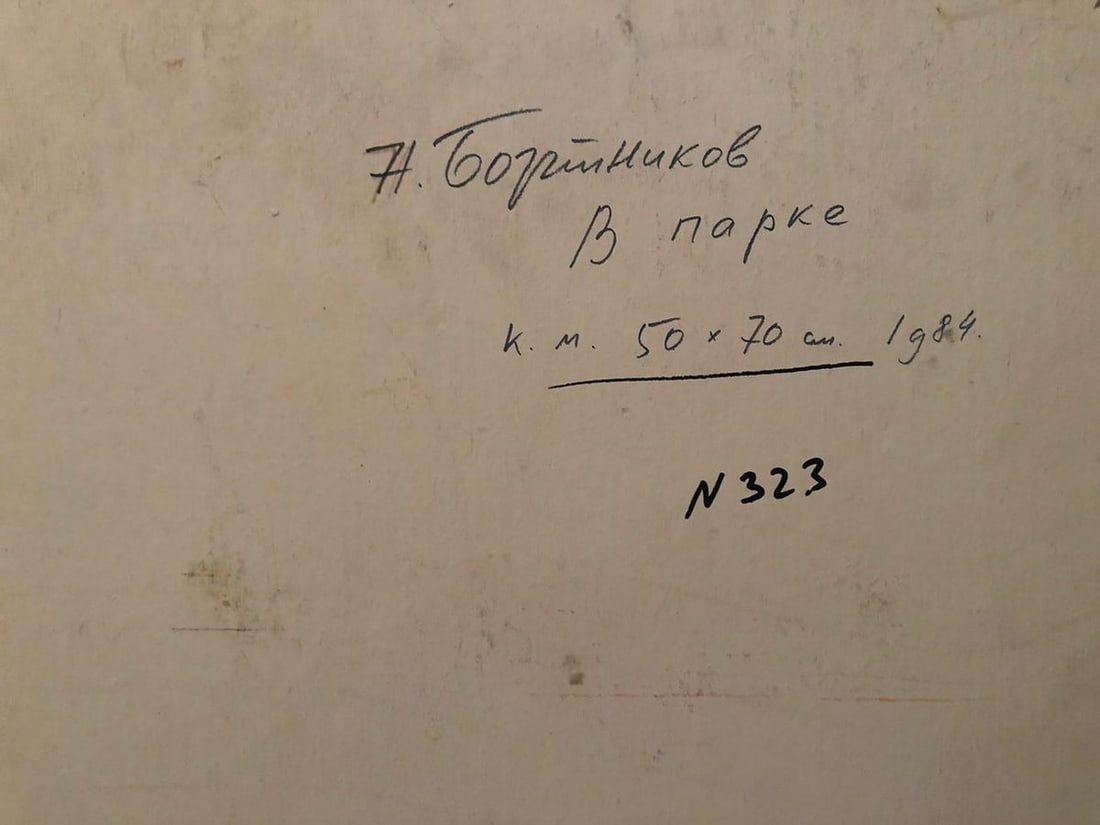 Н. Бортников
В парке
к. м. 50 × 70 см. 1984.
N 323